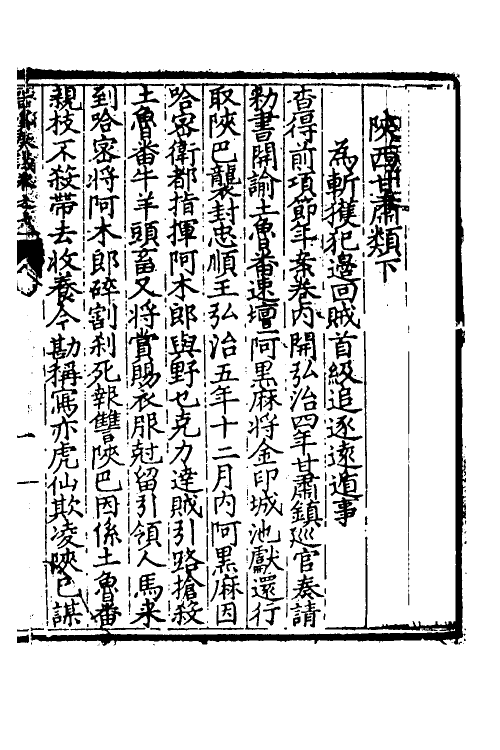 陝西甘肅類下
為斬獲犯邊回賊首級追逐遠遁事
查得前項節年案卷內開弘治四年甘肅鎮巡官奏請
勑書開諭土魯番速壇阿黑麻將金印城池獻還行
取陝巴襲封忠順王弘治五年十二月內阿黑麻因
哈密衛都指揮阿木郎與野乜克力達賊引路搶殺
土魯番牛羊頭畜又將賞賜衣服尅留引領人馬来
到哈密將阿木郎碎割刹死報讐陝巴因係土魯番
親枝不殺帶去收養今勘稱寫亦虎仙欺凌陝巴謀